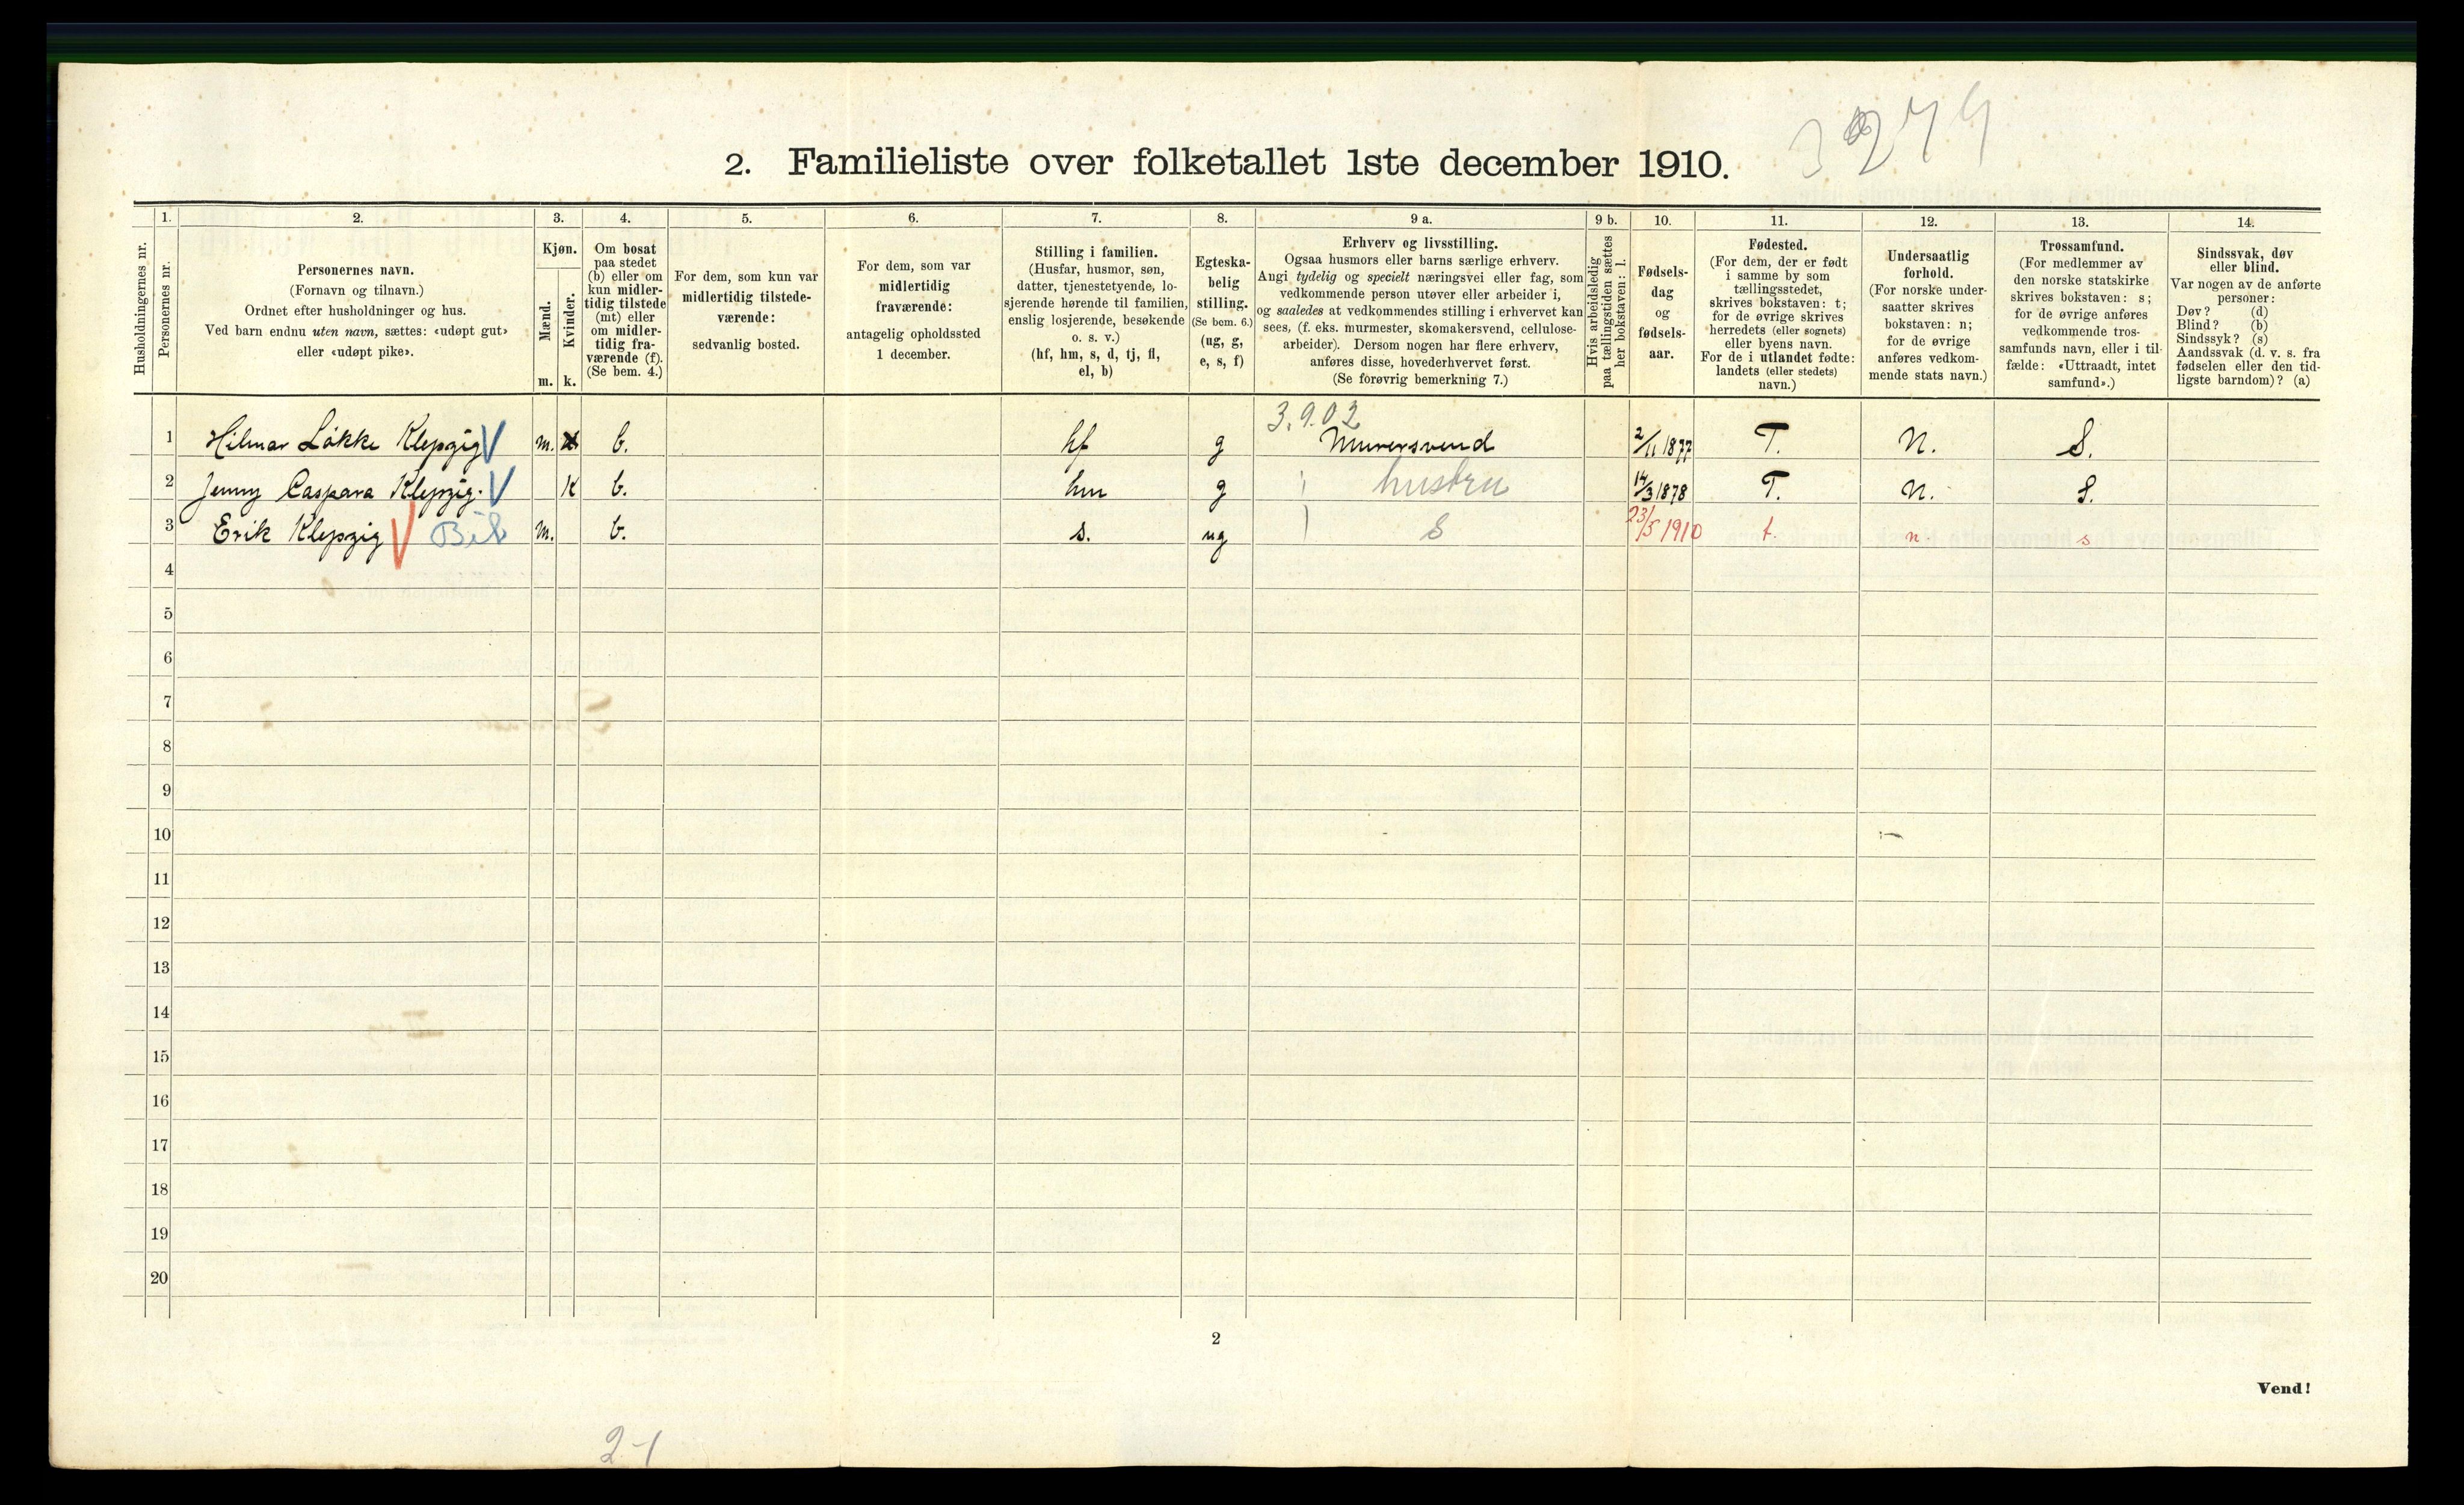 2. Familieliste over folketallet 1ste december 1910.
1. 2. 3. 4. 5. 6. 7. 8. 9 a. 9 b. 10. 11. 12. 13. 14.
Husholdningernes nr.
Personernes nr.
Personernes navn.
(Fornavn og tilnavn.)
Ordnet efter husholdninger og hus.
Ved barn endnu uten navn, sættes: «udøpt gut»
eller «udøpt pike».
Kjøn.
Mænd.
Kvinder.
m. k.
Om bosat
paa stedet
(b) eller om
kun midler-
tidig tilstede
(mt) eller
om midler-
tidig fra-
værende (f).
(Se bem. 4.)
For dem, som kun var
midlertidig tilstede-
værende:
sedvanlig bosted.
For dem, som var
midlertidig
fraværende:
antagelig opholdssted
1 december.
Stilling i familien.
(Husfar, husmor, søn,
datter, tjenestetyende, lo-
sjerende hørende til familien,
enslig losjerende, besøkende
o. s. v.)
(hf, hm, s, d, tj, fl,
el, b)
Egteska-
belig
stilling.
(Se bem. 6.)
(ug, g,
e, s, f)
Erhverv og livsstilling.
Ogsaa husmors eller barns særlige erhverv.
Angi tydelig og specielt næringsvei eller fag, som
vedkommende person utøver eller arbeider i,
og saaledes at vedkommendes stilling i erhvervet kan
sees, (f. eks. murmester, skomakersvend, cellulose-
arbeider). Dersom nogen har flere erhverv,
anføres disse, hovederhvervet først.
(Se forøvrig bemerkning 7.)
Hvis arbeidsledig
paa tællingstiden sættes
her bokstaven: l.
Fødsels-
dag
og
fødsels-
aar.
Fødested.
(For dem, der er født
i samme by som
tællingsstedet,
skrives bokstaven: t;
for de øvrige skrives
herredets (eller sognets)
eller byens navn.
For de i utlandet fødte:
landets (eller stedets)
navn.)
Undersaatlig
forhold.
(For norske under-
saatter skrives
bokstaven: n;
for de øvrige
anføres vedkom-
mende stats navn.)
Trossamfund.
(For medlemmer av
den norske statskirke
skrives bokstaven: s;
for de øvrige anføres
vedkommende tros-
samfunds navn, eller i til-
fælde: «Uttraadt, intet
samfund».)
Sindssvak, døv
eller blind.
Var nogen av de anførte
personer:
Døv? (d)
Blind? (b)
Sindssyk? (s)
Aandssvak (d. v. s. fra
fødselen eller den tid-
ligste barndom)? (a)
3.9.02
1 Hilmar Løkke Klepzig V m. b. hf g Murersvend 2/11 1877 T. N. S.
2 Jenny Caspara Klepzig. V K b. hm g hustru 14/3 1878 T. N. S.
3 Erik Klepzig V m. b. s. ug S 23/5 1910 t. n. s
4
5
6
7
8
9
10
11
12
13
14
15
16
17
18
19
20
2
Vend!
2-1